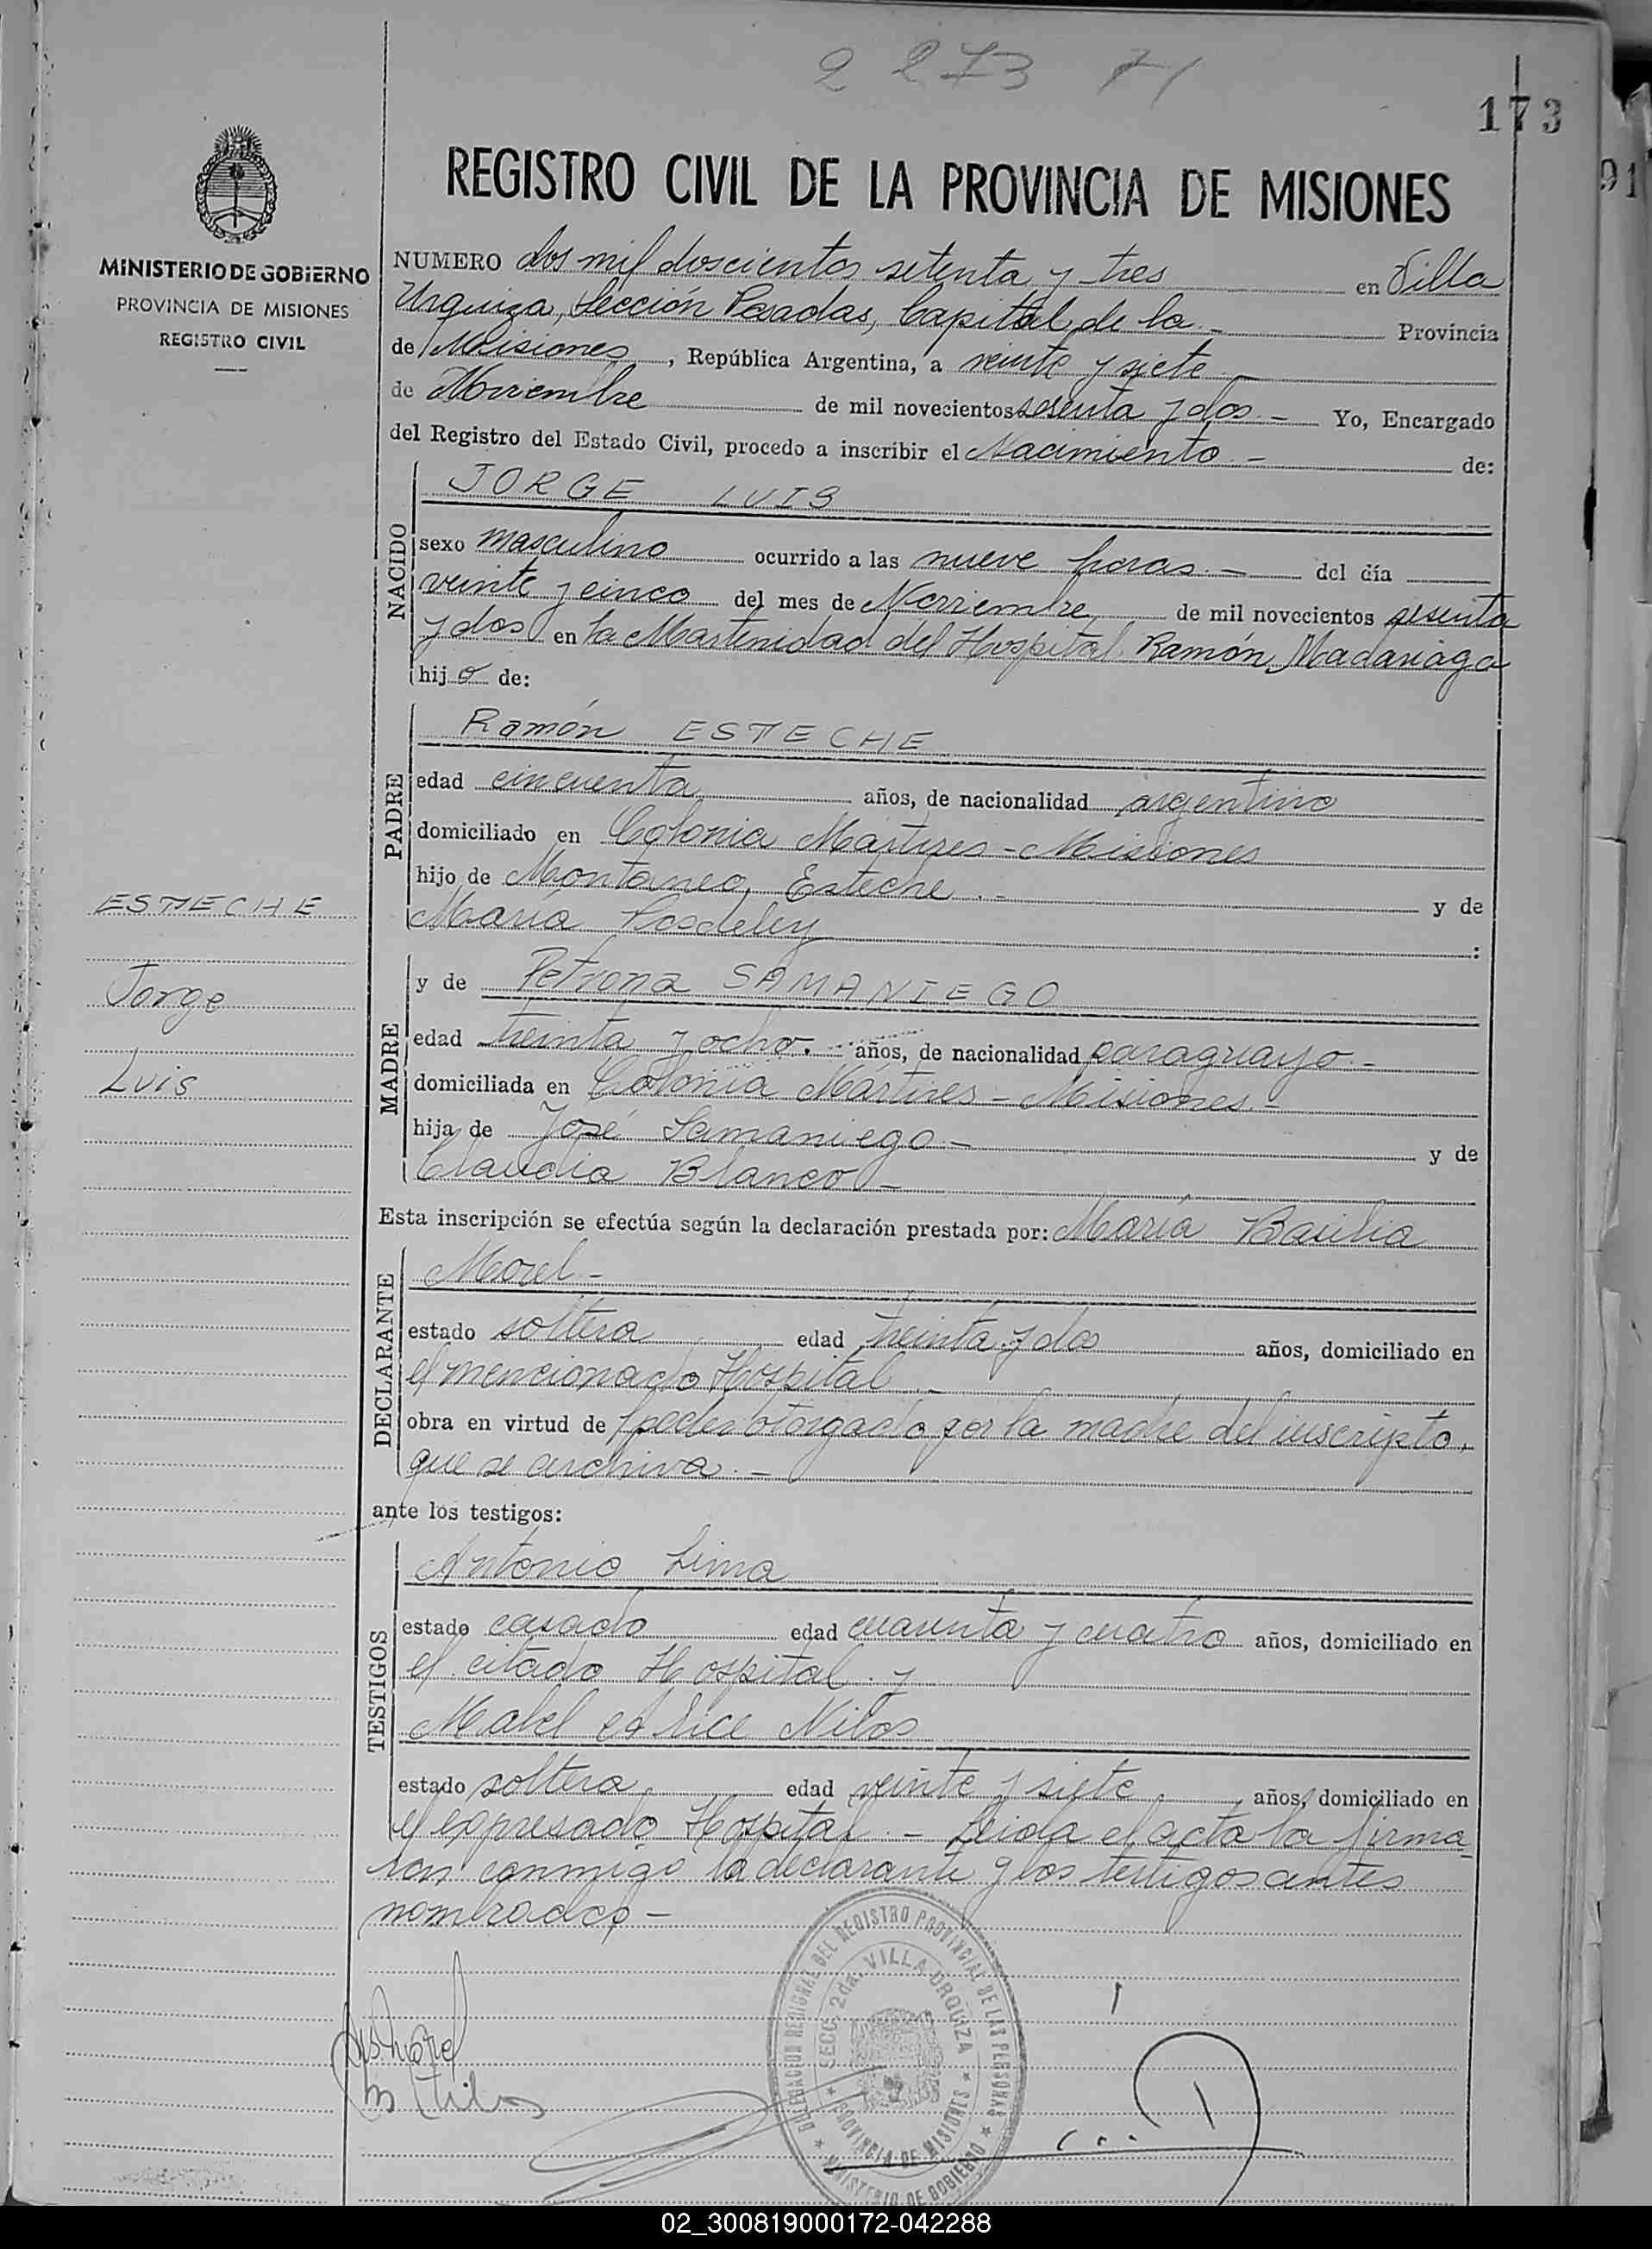 2273 71
173
91
REGISTRO CIVIL DE LA PROVINCIA DE MISIONES
MINISTERIO DE GOBIERNO
PROVINCIA DE MISIONES
REGISTRO CIVIL
NUMERO dos mil doscientos setenta y tres en Villa
Urquiza, Sección Posadas, Capital de la - Provincia
de Misiones, República Argentina, a veinte y siete -
de Noviembre de mil novecientos sesenta y dos. - Yo, Encargado
del Registro del Estado Civil, procedo a inscribir el Nacimiento - de:
NACIDO
JORGE LUIS
sexo masculino ocurrido a las nueve horas. - del día
veinte y cinco del mes de Noviembre de mil novecientos sesenta
y dos en la Marternidad del Hospital Ramón Madariaga
hijo de:
PADRE
Ramón ESTECHE
edad cincuenta años, de nacionalidad argentino
domiciliado en Colonia Mártires - Misiones
hijo de Esteche. - y de
María :
ESTECHE
Jorge
Luis
MADRE
y de Petrona SAMANIEGO
edad treinta y ocho. años, de nacionalidad paraguayo -
domiciliada en Colonia Mártires - Misiones. -
hija de José Samaniego - y de
Claudia Blanco -
Esta inscripción se efectúa según la declaración prestada por: María Basilia
DECLARANTE
Morel -
estado soltera edad treinta y dos años, domiciliado en
el mencionado Hospital -
obra en virtud de poder otorgado por la madre del inscripto,
que se archiva. -
ante los testigos:
TESTIGOS
Antonio Lima
estado casado edad cuarenta y cuatro años, domiciliado en
el citado Hospital. y
Mabel Alice
estado soltera edad veinte y siete años, domiciliado en
el expresado Hospital. - Leida el acta la firma
ron conmigo la declarante y los testigos antes
nombrados -
DELEGACION REGIONAL DEL REGISTRO PROVINCIAL DE LAS PERSONAS
SECC. 2da. VILLA URQUIZA
PROVINCIA DE MISIONES
MINISTERIO DE GOBIERNO
02_300819000172-042288